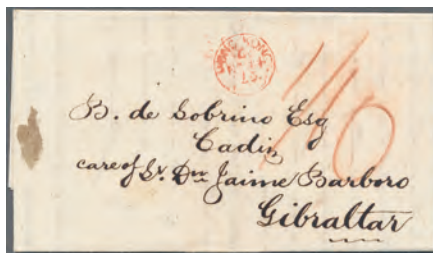 HONG KONG
1/6
B. de Sobrino Esq
Cadiz
care of Sr. Dn Jaime Barboro
Gibraltar